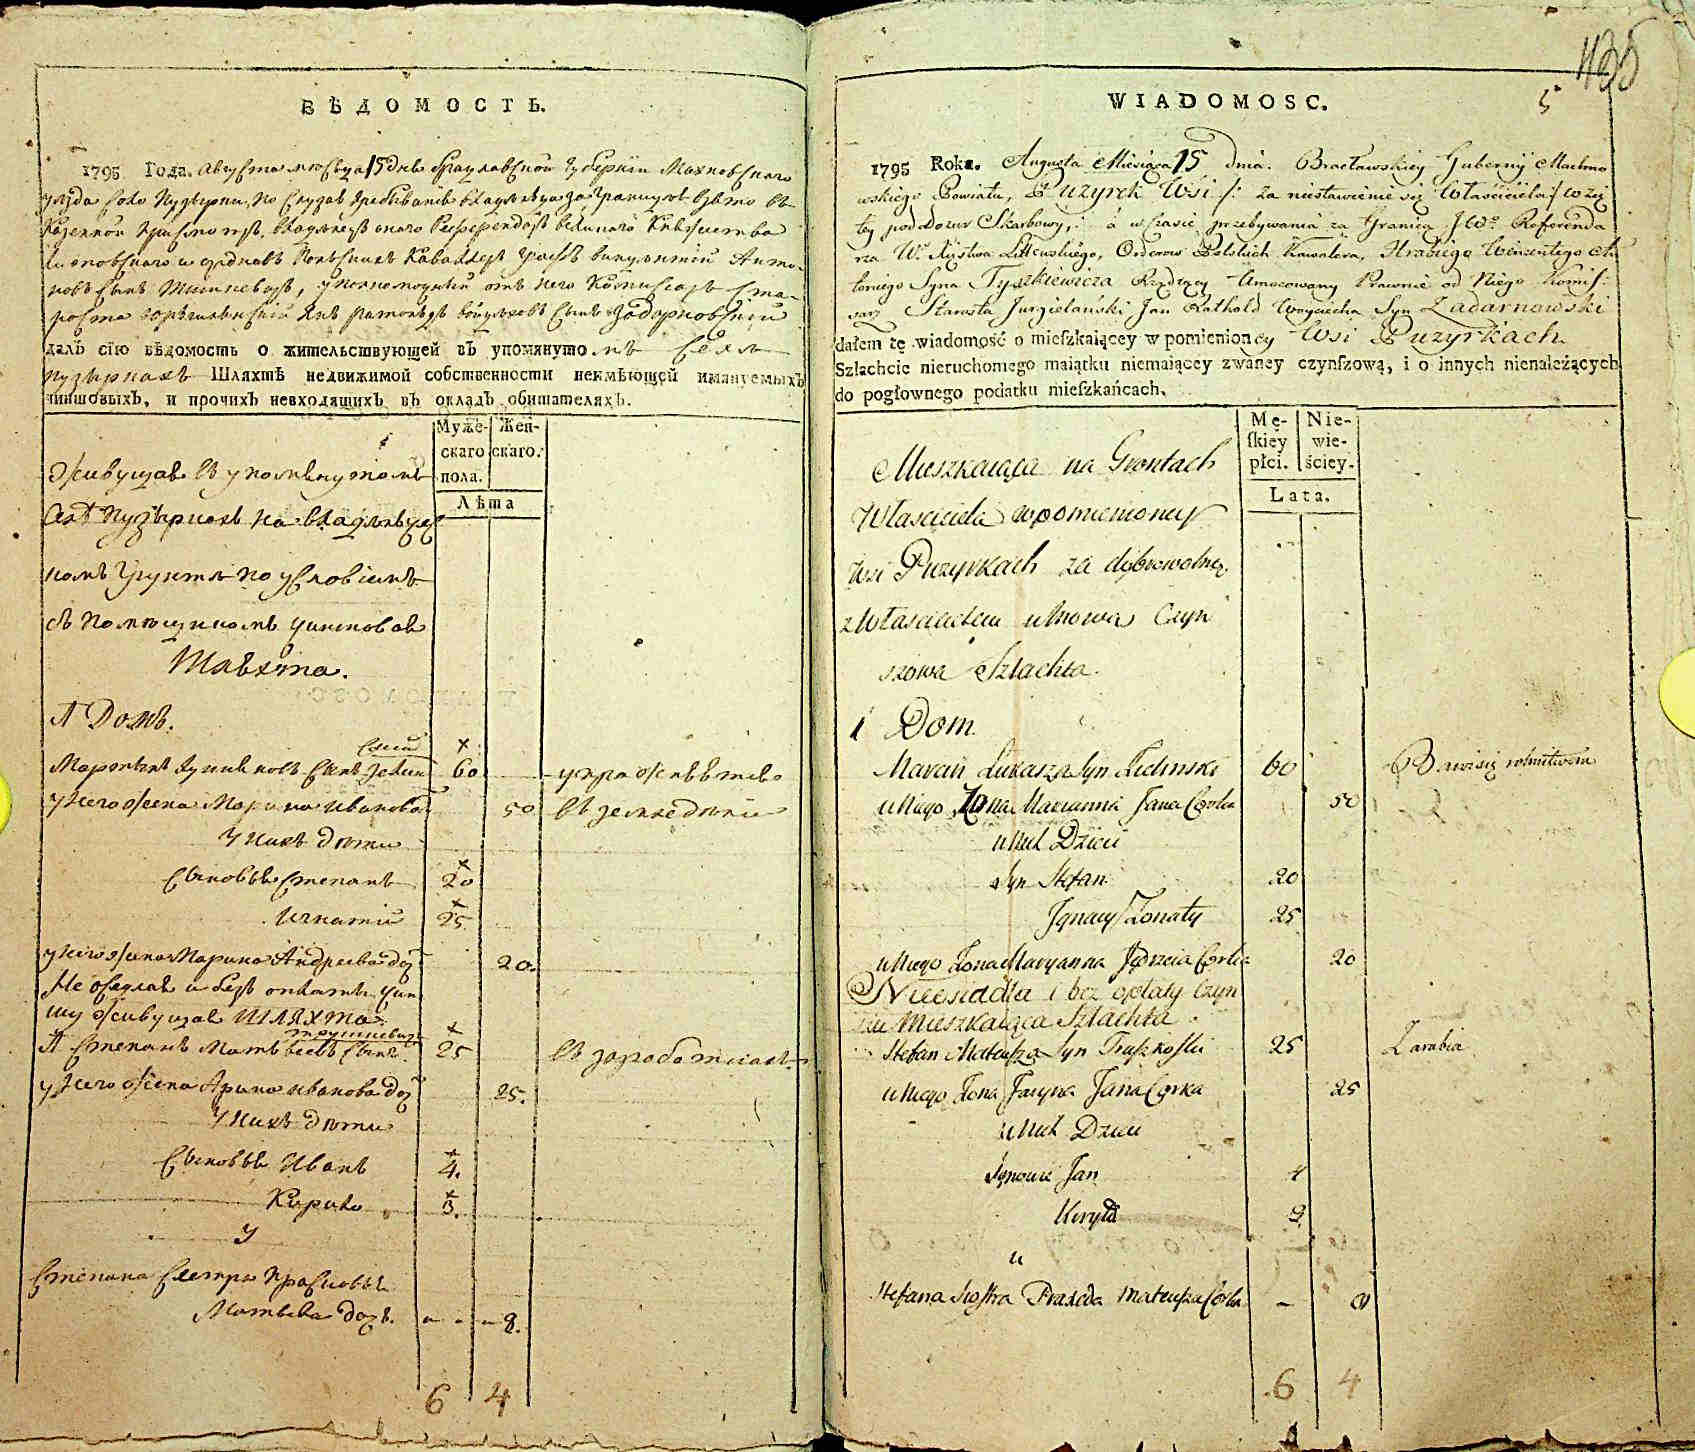 ВѢДОМОСТЬ.
1795 Года. Августа месяца 15 дня Брацлавской Губернии Махновского
уезда села Пузырки, по
Казенной присмотръ,
Графъ Викентий Анто-
новъ сынъ Тишкевичъ, уполномоченный отъ него Комисаръ Ста-
роста Янъ сынъ Задарновский
далъ сїю вѣдомость о жительствующей въ упомянуто мъ селе
пузыркахъ Шляхтѣ недвижимой собственности неимѣющей имянуемыхъ
чиншовыхъ, и прочихъ невходящихъ въ окладъ обишателяхъ.
Муже- Жен-
скаго скаго.
пола.
Лѣта
Живущая в упомянутомъ
селѣ Пузыркахъ на владелчес
комъ грунте по условиямъ
съ помещикомъ чиншовая
Шляхта.
1 Домъ.
сынъ 60 упражняется
у него жена Марина Иванова 50 в земледелии
У нихъ дети
Сыновья Степанъ 20
Игнатий 25
у него жена Марина Андреева доч 20.
Не оседлая и безъ оплаты чин
шу живущая Шляхта.
1 Степанъ Матвеевъ сынъ 25 въ заработкахъ
у него жена Арина Иванова доч 25.
У нихъ дети
Сыновья Иванъ 4.
Кирило 3.
У
Степана сестра
Матвева дочь. - - - 8.
6 4
435
5
WIADOMOSC.
1795 Roku. Augusta Miesiąca 15 dnia. Bracławskiey Gubernÿ Machno
wskiego Powiatu, Puzyrek Wsi /: za niestawienie się Właściciela :/ wzię
tey pod dozor Skarbowy, a w czasie przebywania za Granicą JWo Referenda
rza W. Xięstwa Littewskiego, Orderow Polskich Kawalera, Hrabiego Wincentego An
toniego Syna Tyszkiewicza Rządzcy Umocowany Prawnie od Niego Komis:
sarz Starosta Jan Rathold Woyciecha Syn Zadarnowski
dałem tę wiadomość o mieszkaiącey w pomienioney Wsi Puzyrkach
Szlachcie nieruchomego maiątku niemaiącey zwaney czynszową, i o innych nienależących
do pogłownego podatku mieszkańcach.
Mę- Nie-
skiey wie-
płci. ściey.
Lata.
Mieszkaiąca na Grontach
Właściciela wpomienioney
Wsi Puzyrkach za dobrowolną
z Właścicielem umową Czyn
szowa Szlachta.
1 Dom.
Marcin Łukasza Syn Zielinski 60 Bawi się rolnictwem
u Niego Żona Marianna Jana Corka 50
u Nich Dzieci
Syn Stefan 20
Jgnacy Żonaty 25
u Niego Żona Maryanna Jędrzeia Corka 20
Nieosiadła i bez opłaty Czyn
szu Mieszkaiąca Szlachta.
Stefan Mateusza Syn Truszkoski 25 Zarabia
u Niego Żona Jaryna Jana Corka 25
u Nich Dzieci
Synowie Jan 4
Keryło 3.
u
Stefana Siostra Praxeda Mateusza Corka - 8
6 4